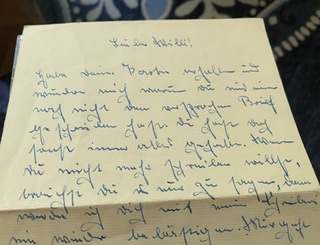 Lieber Willi!
Habe deine Karte erhalten und
wundere mich warum du mir immer
noch nicht den versprochenen Brief
geschrieben hast. Du hast doch
sonst immer alles gehalten. Wenn
du nicht mehr schreiben willst,
brauchst du es nur zu sagen, dann
werde ich dich mit mein Schreiben
nie wieder belästigen.